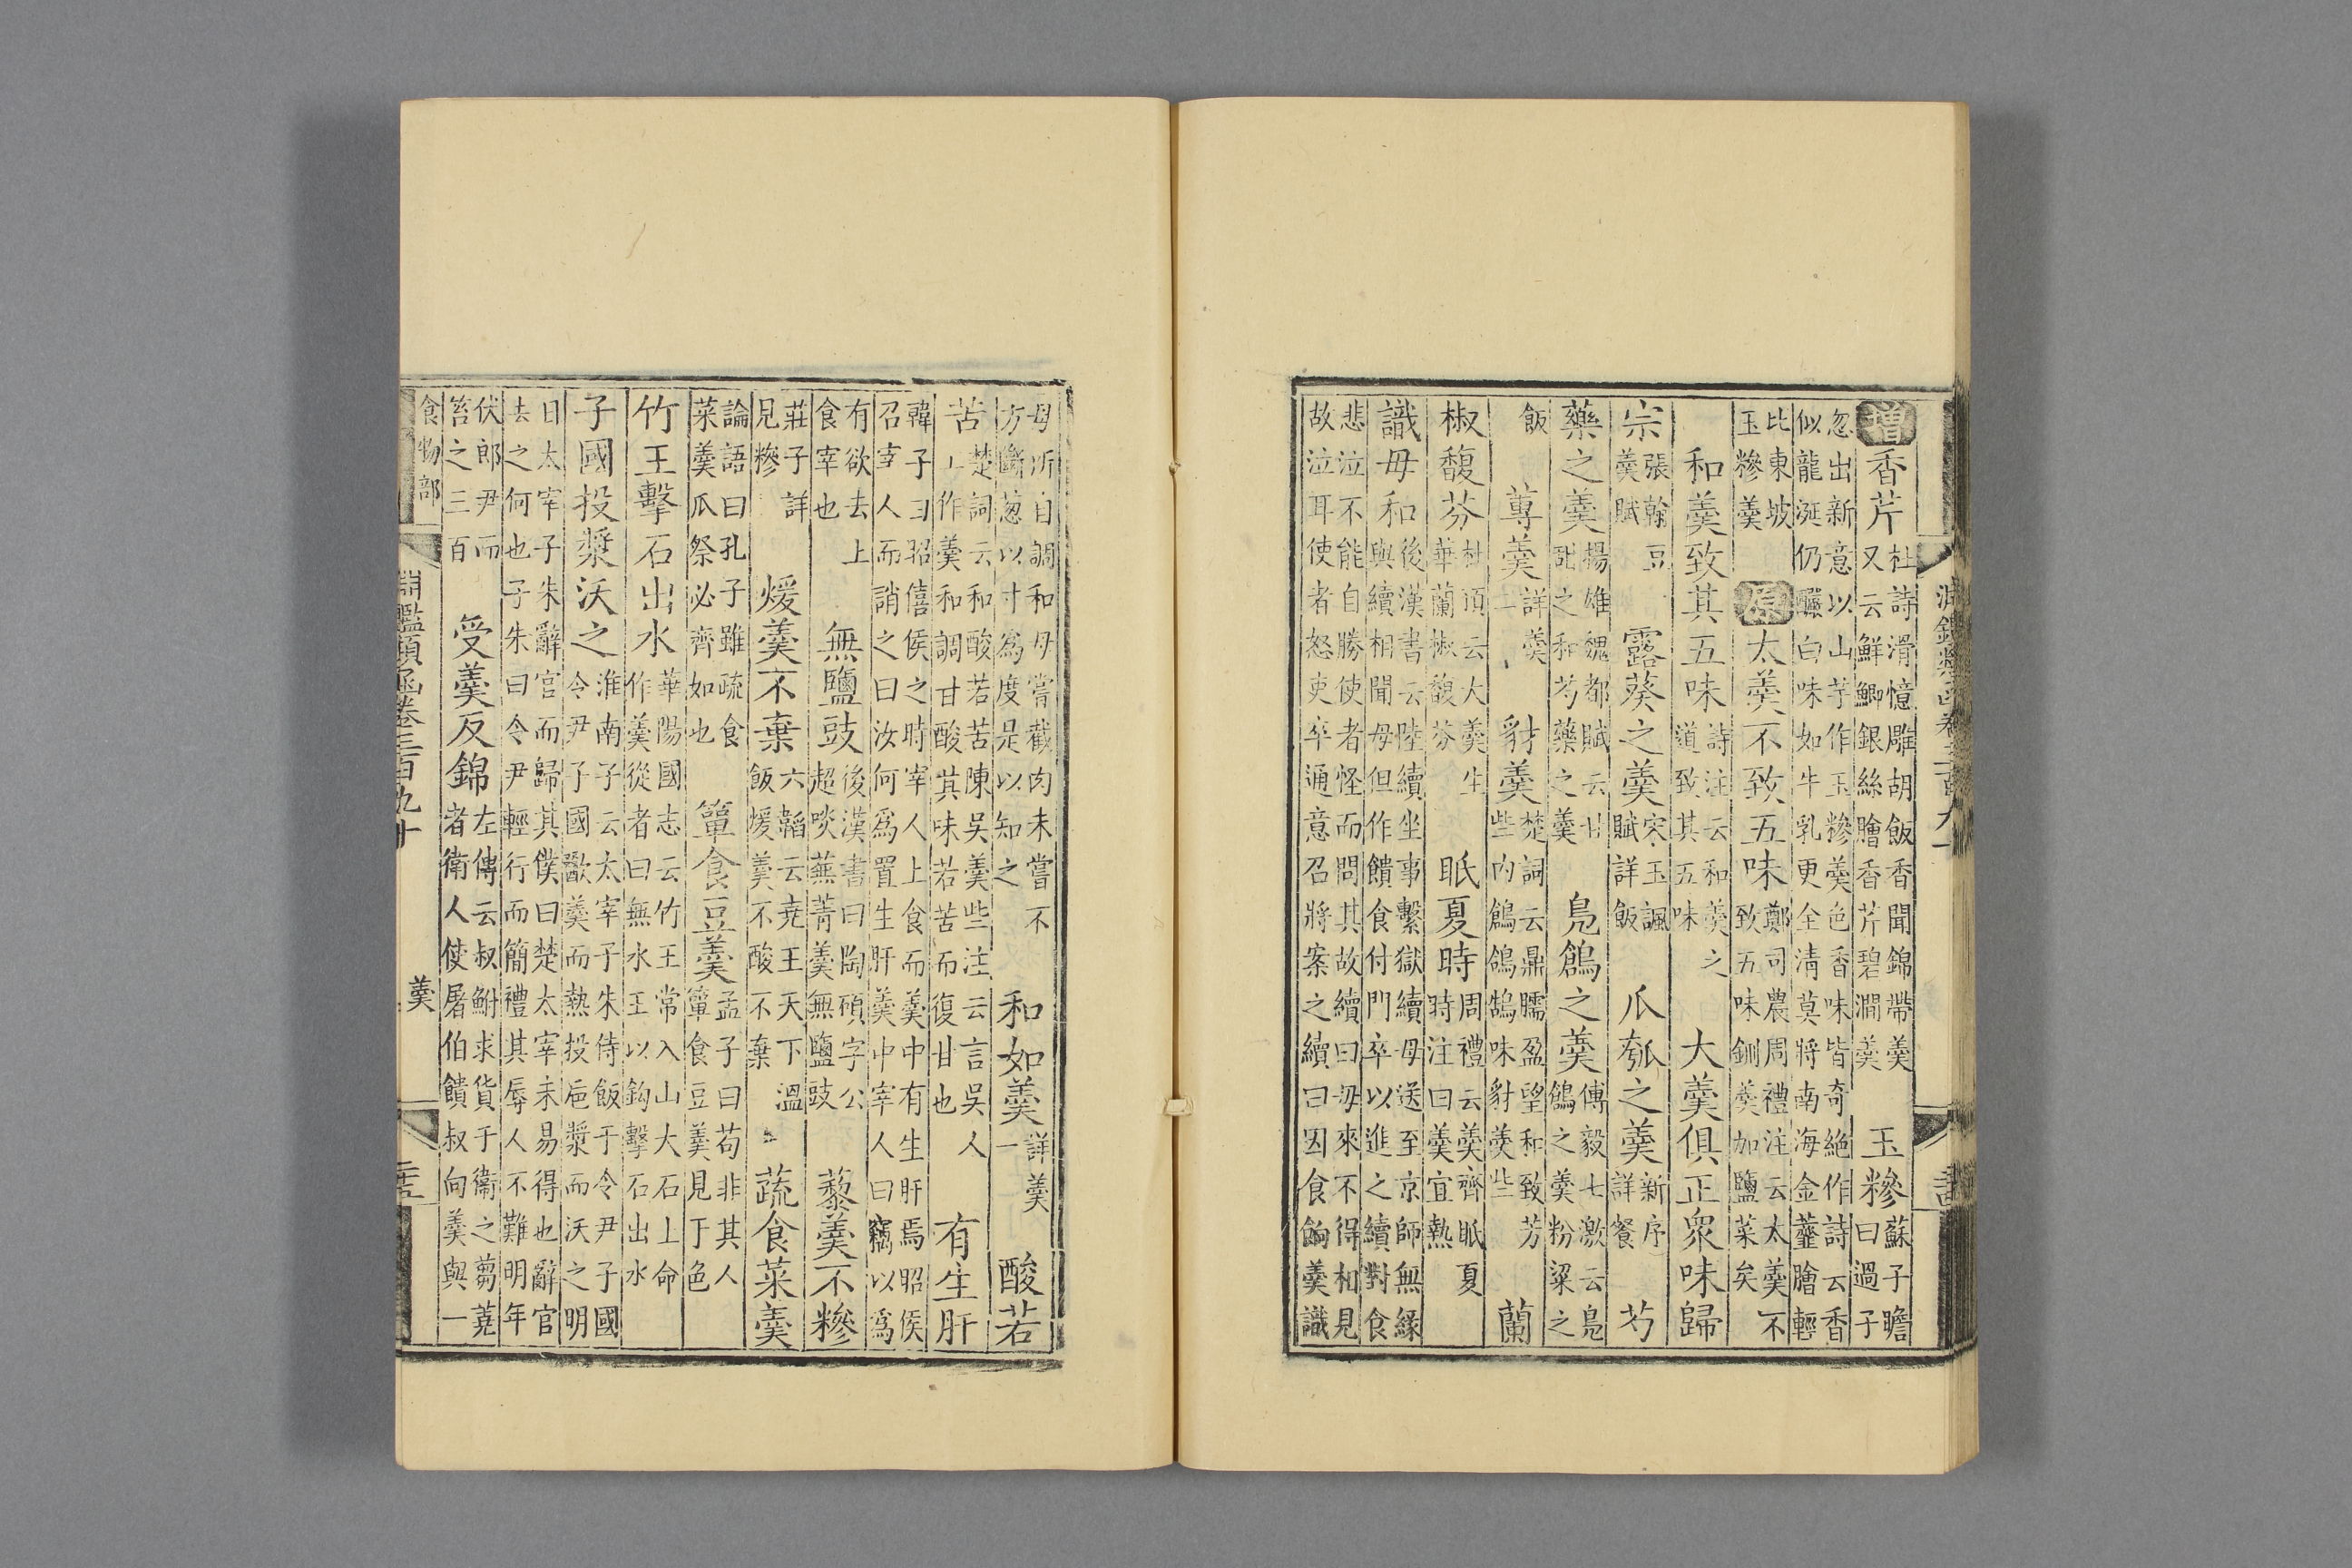 增香芹杜詩滑憶雕胡飯香聞錦帶羹
又云鮮鯽銀絲膾香芹碧澗羹玉糝蘇子瞻
曰過子
忽出新意以山芋作玉糝羹色香味皆奇絕作詩云香
似龍涎仍釅白味如牛乳更全清莫將南海金虀膾輕
比東坡
玉糝羹原太羹不致五味鄭司農周禮注云太羹不
致五味鉶羹加鹽菜矣
和羹致其五味詩注云和羹之
道致其五味大羹俱正眾味歸
宗張翰豆
羹賦露葵之羹宋玉諷
賦詳飯瓜瓠之羹新序
詳餐芍
藥之羹揚雄魏都賦云甘
甜之和芍藥之羹鳧鶬之羹傅毅七激云鳧
鶬之羹粉粱之
飯蓴羹詳羹
一豺羹楚詞云鼎臑盈望和致芳
些內鶬鴿鵠味豺羹些蘭
椒馥芬杜頂云大羹生
華蘭椒馥芬眂夏時周禮云羹齊眂夏
時注曰羹宜熱
識母和後漢書云陸續坐事繫獄續母送至京師無緣
與續相聞母但作饋食付門卒以進之續對食
悲泣不能自勝使者怪而問其故續曰母來不得相見
故泣耳使者怒吏卒通意召將案之續曰因食餉羹識
母所自調和母嘗截肉未嘗不
方斷葱以寸為度是以知之和如羹詳羹
一酸若
苦楚詞云和酸若苦陳吳羹些注云言吳人
工作羹和調甘酸其味若苦而復甘也有生肝
韓子曰昭僖侯之時宰人上食而羹中有生肝焉昭侯
召宰人而誚之曰汝何為置生肝羹中宰人曰竊以為
有欲去上
食宰也無鹽豉後漢書曰陶碩字公
超啖蕪菁羹無鹽豉藜羹不糝
莊子詳
見糝煖羹不棄六韜云堯王天下溫
飯煖羹不酸不棄蔬食菜羹
論語曰孔子雖疏食
菜羹瓜祭必齊如也簞食豆羹孟子曰苟非其人
簞食豆羹見于色
竹王擊石出水華陽國志云竹王常入山大石上命
作羹從者曰無水王以鈎擊石出水
子國投漿沃之淮南子云太宰子朱侍飯于令尹子國
令尹子國歠羹而熱投巵漿而沃之明
日太宰子朱辭官而歸其僕曰楚太宰未易得也辭官
去之何也子朱曰令尹輕行而簡禮其辱人不難明年
伏郎尹而
笞之三百受羹反錦左傳云叔鮒求貨于衛之芻蕘
者衛人使屠伯饋叔向羹與一
食物部 淵鑑類函卷三百九十 羹